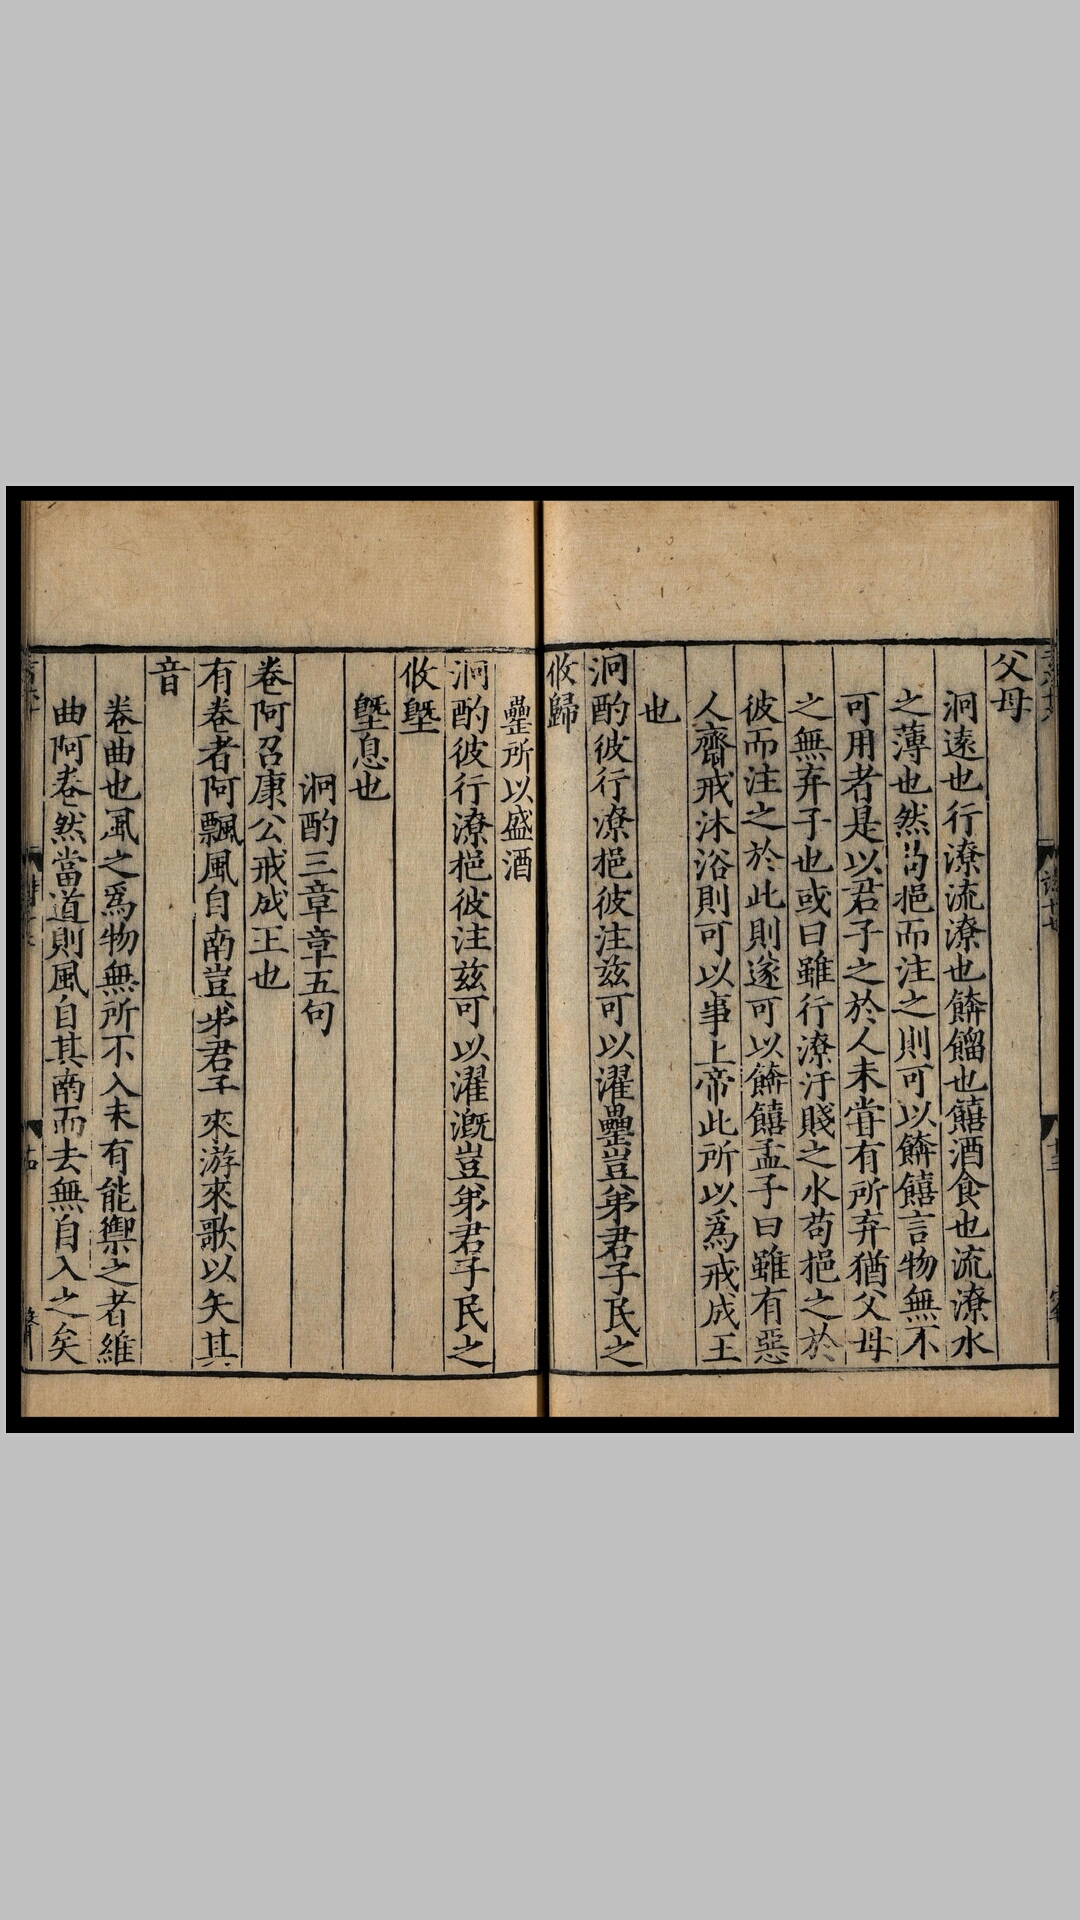 父母
泂遠也行潦流潦也餴餾也饎酒食也流潦水
之薄也然苟挹而注之則可以餴饎言物無不
可用者是以君子之於人未甞有所弃猶父母
之無弃子也或曰雖行潦汙賤之水苟挹之於
彼而注之於此則遂可以餴饎孟子曰雖有惡
人齋戒沐浴則可以事上帝此所以爲戒成王
也
泂酌彼行潦挹彼注兹可以濯罍豈弟君子民之
攸歸
罍所以盛酒
泂酌彼行潦挹彼注兹可以濯漑豈弟君子民之
攸塈
塈息也
泂酌三章章五句
卷阿召康公戒成王也
有卷者阿飄風自南豈弟君子來游來歌以矢其
音
卷曲也風之爲物無所不入未有能禦之者維
曲阿卷然當道則風自其南而去無自入之矣